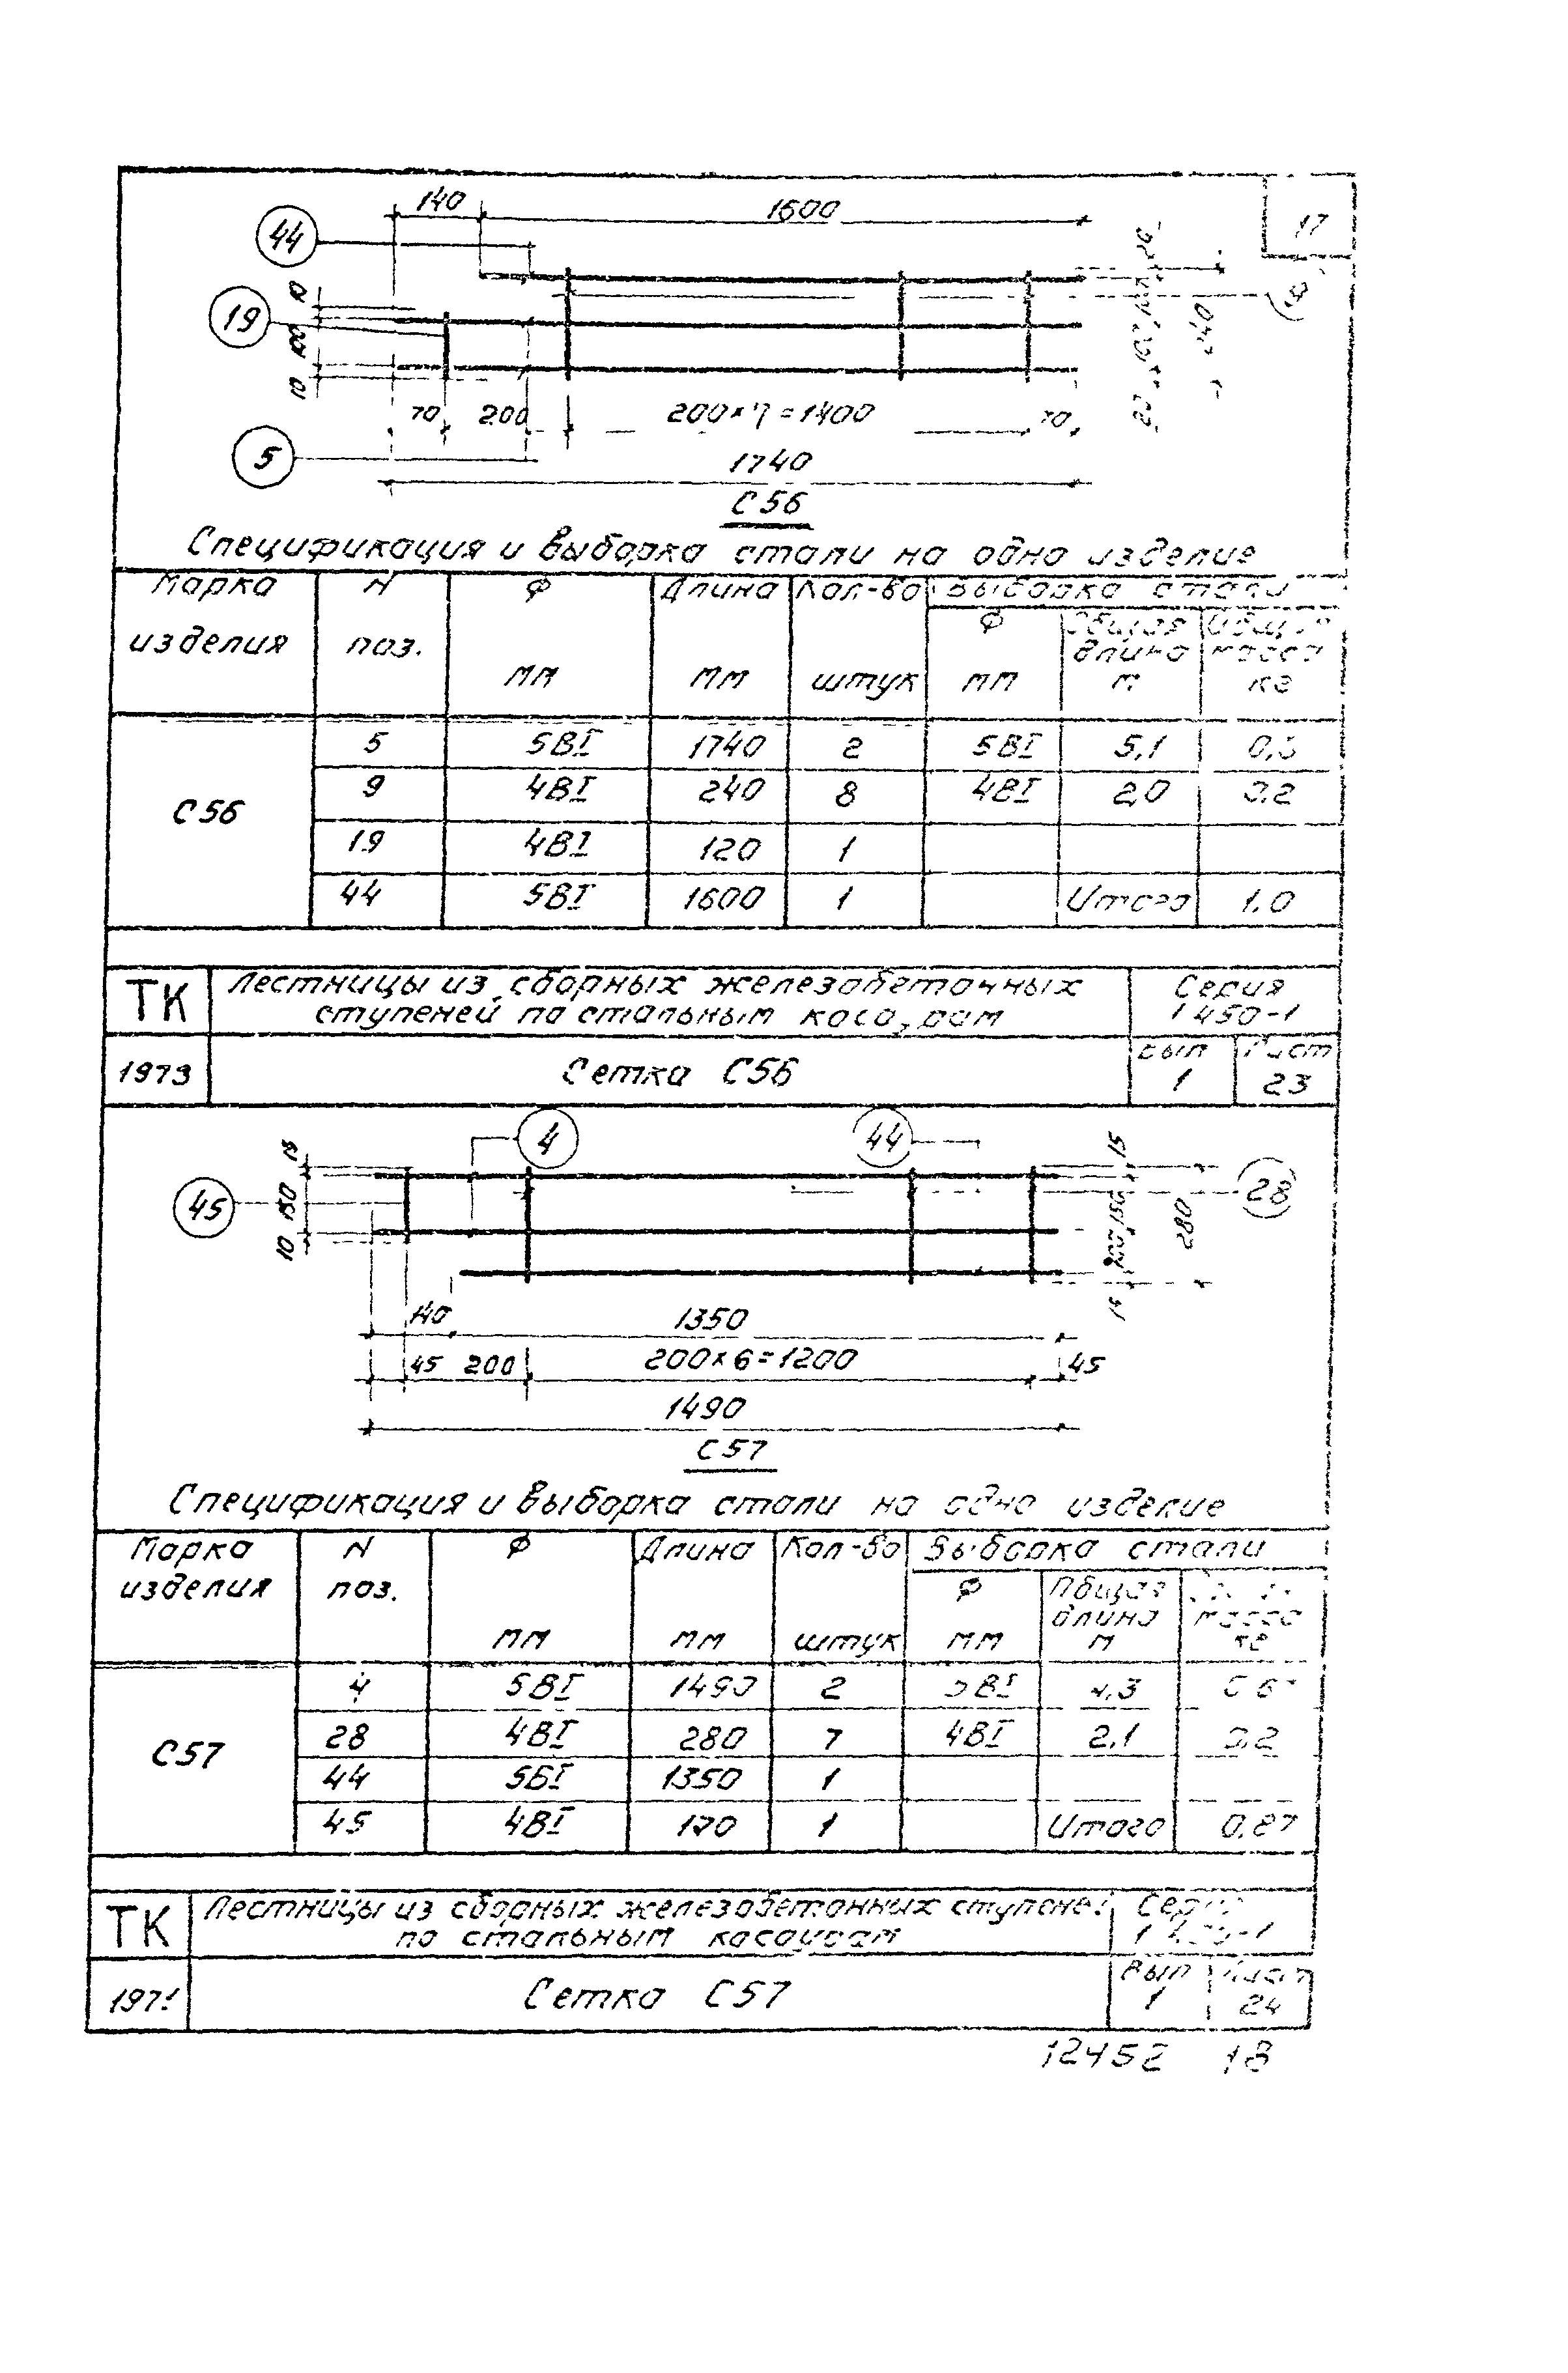 17
140 1600
44
19
10 100 10
70 200 200×7=1400 70
5
1740
С56
Спецификация и выборка стали на одно изделие
Марка изделия N поз. Ф мм Длина мм Кол-во штук Выборка стали
Ф мм Общая длина м Общая масса кг
С56
5 5ВI 1740 2 5ВI 5,1
9 4ВI 240 8 4ВI 2,0 0.2
19 4ВI 120 1
44 5ВI 1600 1 Итого 1.0
ТК Лестницы из сборных железобетонных Серия
ступеней по стальным косоурам 1 450-1
1973 Сетка С56 Вып 1 Лист 23
4 44
45 28
15 150 10
15 280
140 1350
45 200 200×6=1200 45
1490
С57
Спецификация и выборка стали на одно изделие
Марка изделия N поз. Ф мм Длина мм Кол-во штук Выборка стали
Ф мм Общая длина м масса кг
С57
4 5ВI 1490 2 5ВI 4,3
28 4ВI 280 7 4ВI 2.1 0.2
44 5ВI 1350 1
45 4ВI 170 1 Итого 0.87
ТК Лестницы из сборных железобетонных ступеней Серия
по стальным касаурам
Сетка С57 Вып 1 Лист 24
12452 18